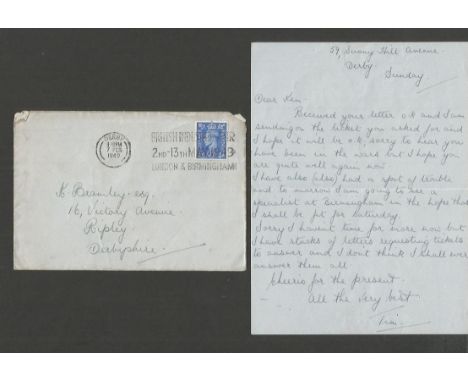 DERBY
1949
2ND-13TH MAY
LONDON & BIRMINGHAM
K Bramley esq.
16, Victory Avenue
Ripley
Derbyshire
59, Sunny Hill Avenue
Derby.
Sunday
Dear Ken.
Received your letter o.k and I am
sending on the ticket you asked for and
I hope it will be o.k, sorry to hear you
have been in the ward but I hope you
are quite well again.
I have also (also) had a spot of trouble
and to morrow I am going to see a
specialist at Birmingham in the hope that
I shall be fit for Saturday.
Sorry I havent time for more now but
I have stacks of letters requesting tickets
to answer and I dont think I shall ever
answer them all.
Cheerio for the present
All the very best